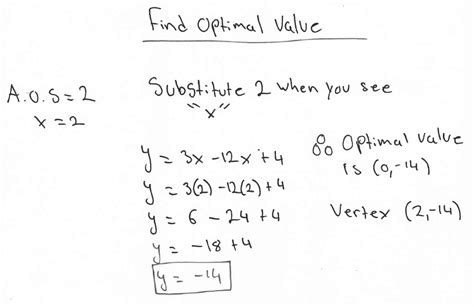 Find Optimal Value
A.O.S = 2
x = 2
Substitute 2 when you see
"x"
y = 3x - 12x + 4
y = 3(2) - 12(2) + 4
y = 6 - 24 + 4
y = -18 + 4
y = -14
∴ Optimal value
is (0,-14)
Vertex (2,-14)